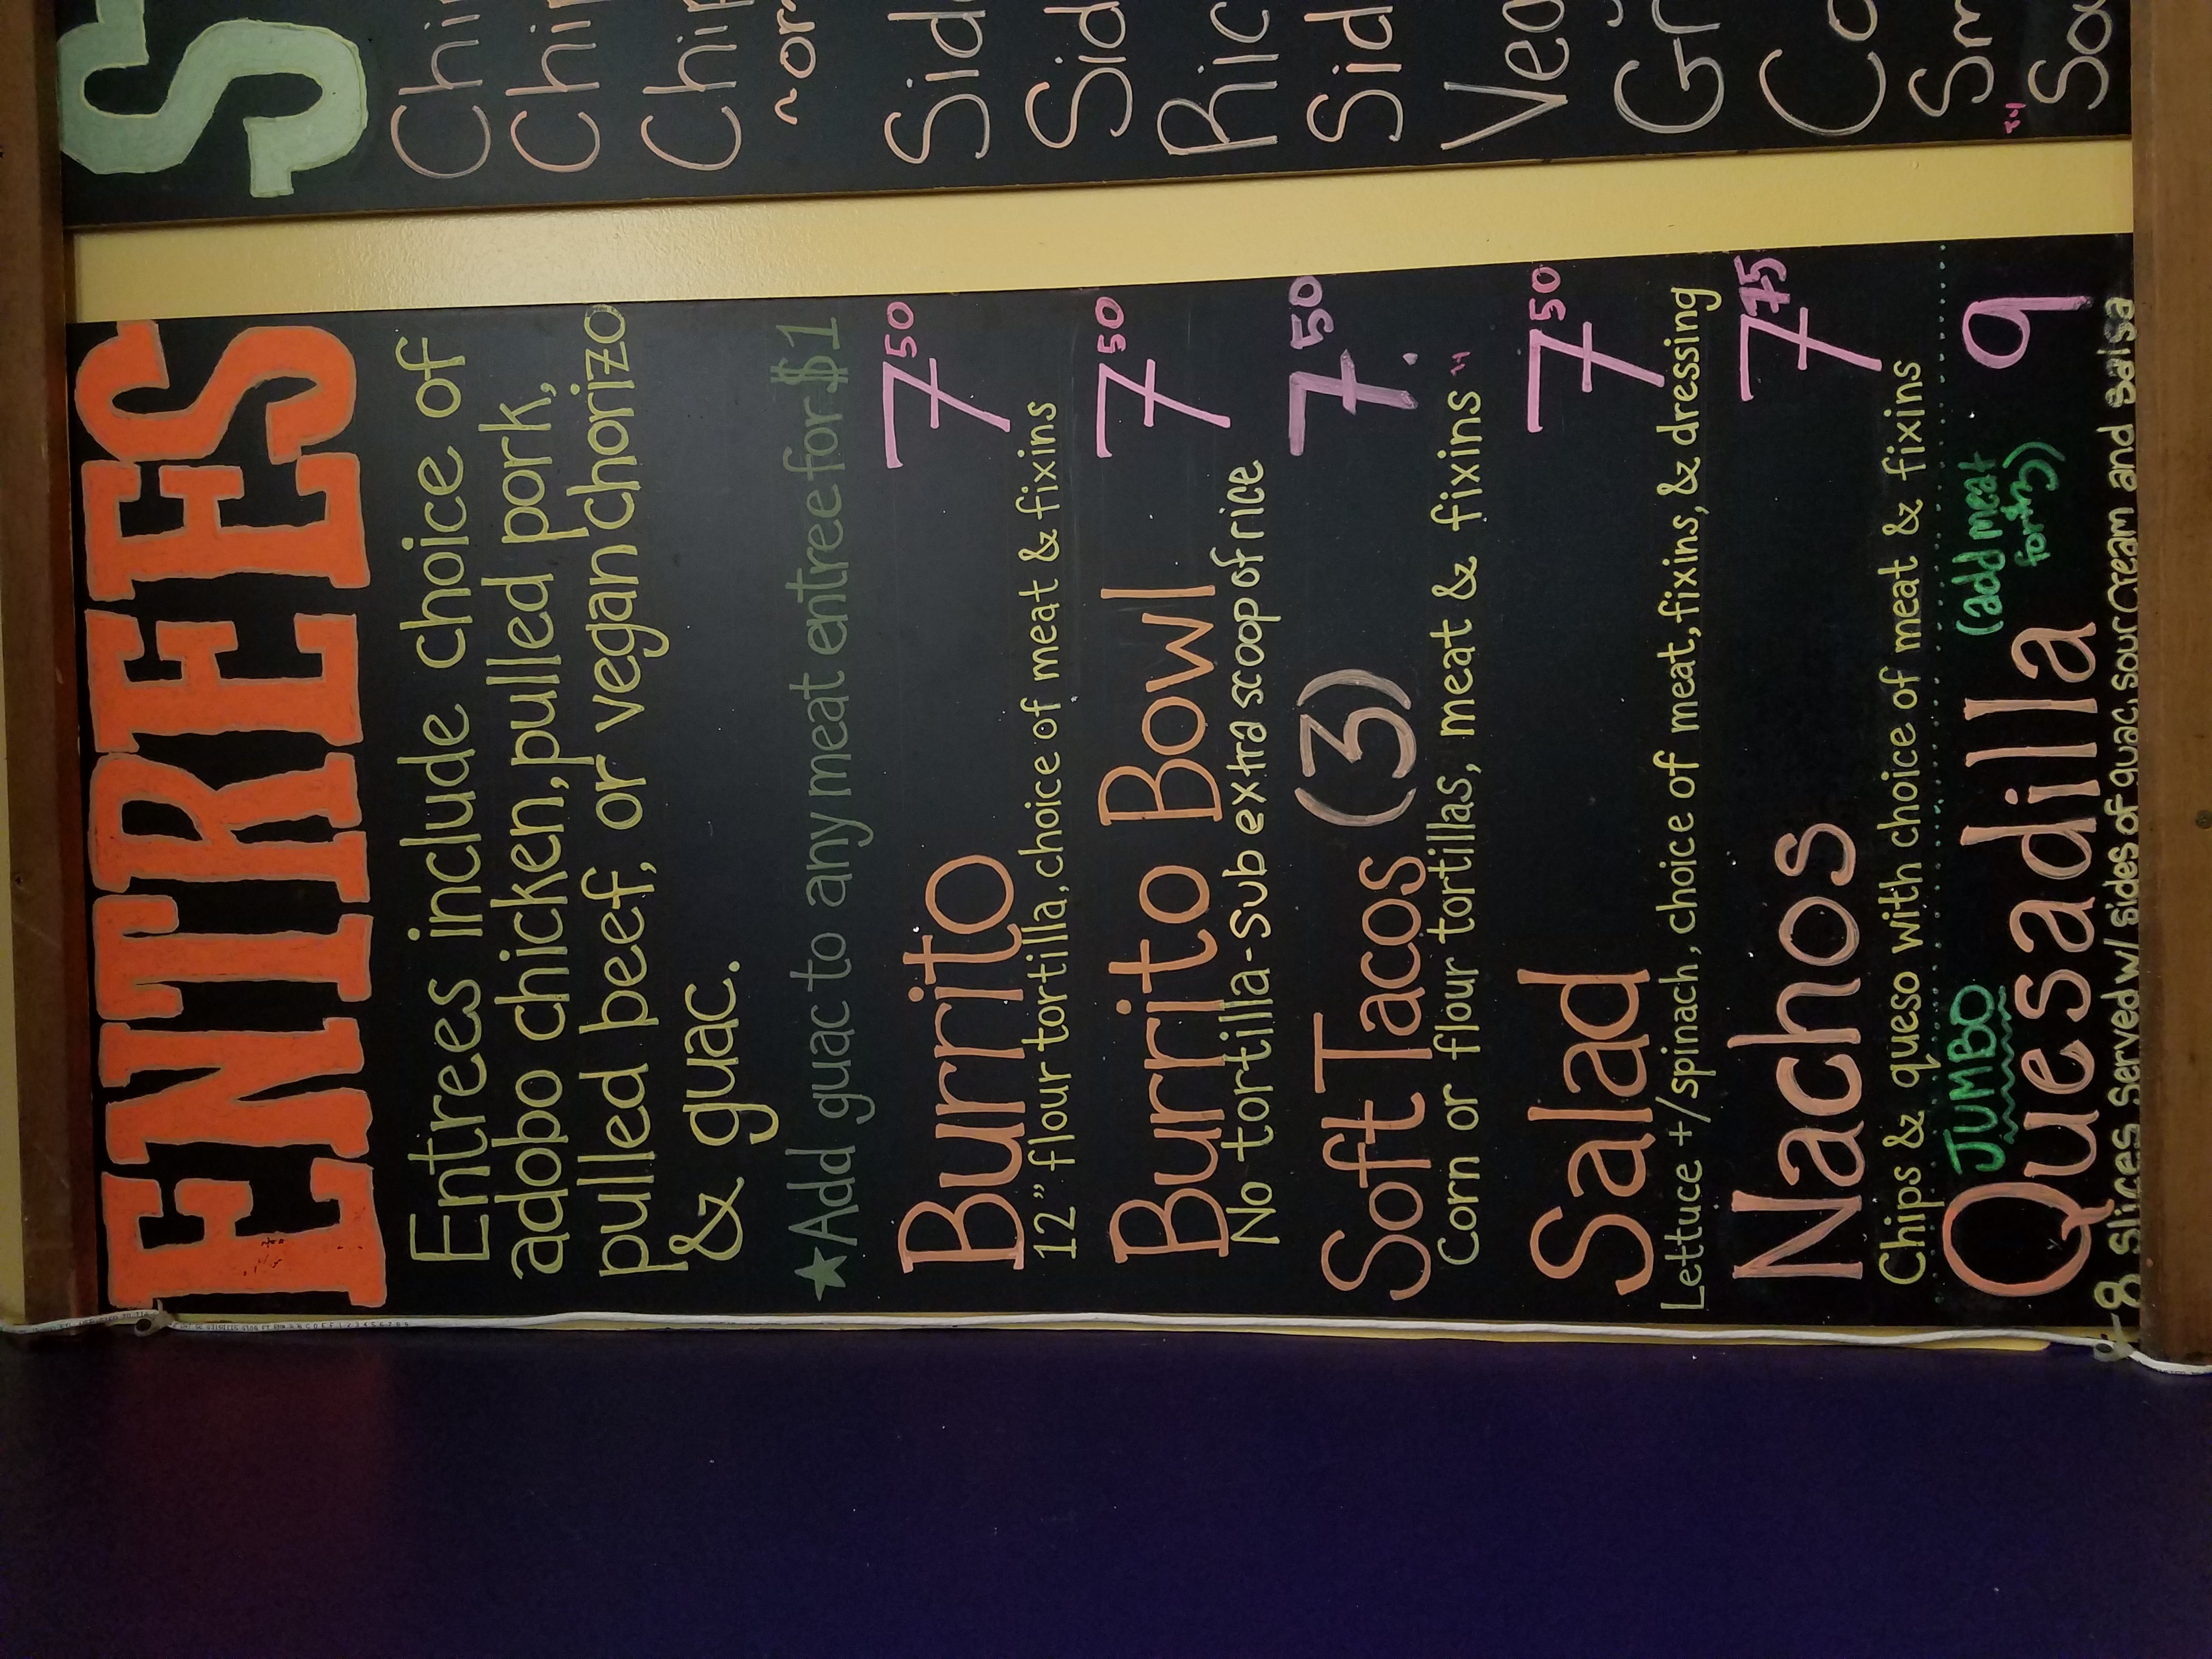 ENTREES
Entrees include choice of
adobo chicken, pulled pork,
pulled beef, or vegan chorizo
& guac.
★Add guac to any meat entree for $1
Burrito 7 50
12" flour tortilla, choice of meat & fixins
Burrito Bowl 7 50
No tortilla - sub extra scoop of rice
Soft Tacos (3) 7. 50
Corn or flour tortillas, meat & fixins
Salad 7 50
Lettuce +/spinach, choice of meat, fixins, & dressing
Nachos 7 75
Chips & queso with choice of meat & fixins
JUMBO
Quesadilla (add meat for $3) 9
8 slices served w/ sides of guac, sour cream and salsa
S
Chi
Chip
Chip
~or
Sid
Sid
Ric
Sid
Veg
Gr
Co
Sm
Sou